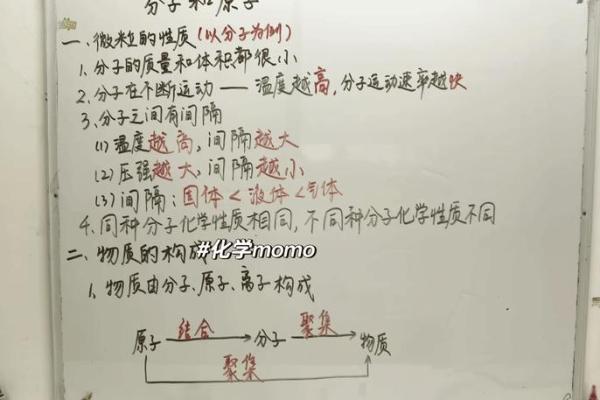 分子和原子
一、微粒的性质(以分子为例)
1. 分子的质量和体积都很小
2. 分子在不断运动 —— 温度越高, 分子运动速率越快
3. 分子之间有间隔
(1) 温度越高, 间隔越大
(2) 压强越大, 间隔越小
(3) 间隔: 固体 < 液体 < 气体
4. 同种分子化学性质相同, 不同种分子化学性质不同
二、物质的构成
#化学momo
1. 物质由分子、原子、离子构成
结合 聚集
原子 分子 物质
聚集